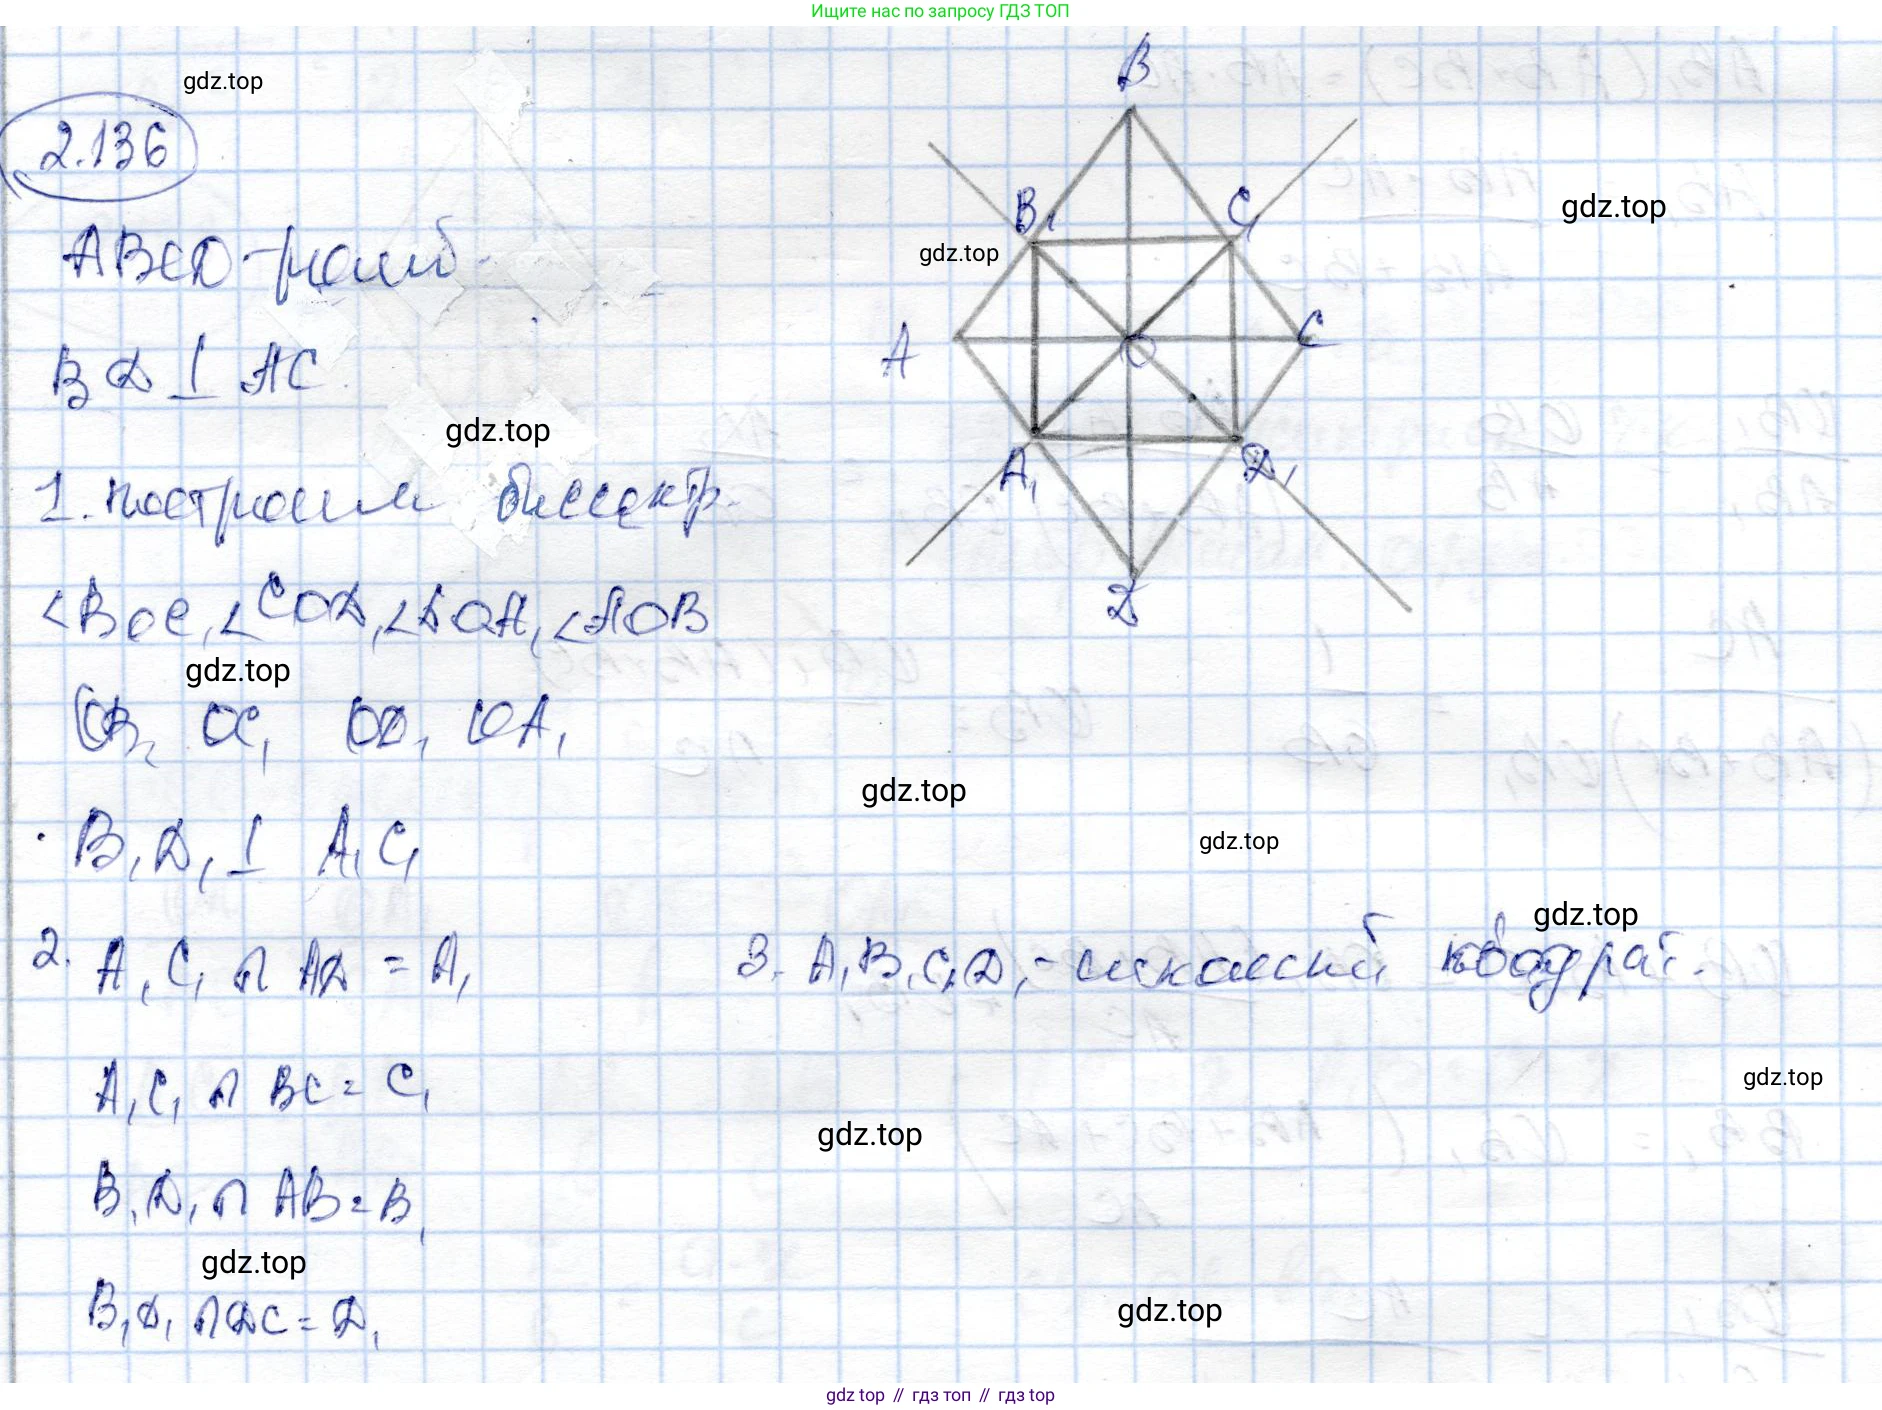 Ищите нас по запросу ГДЗ ТОП
gdz.top
2.136
ABCD - ромб.
BD ⊥ AC.
gdz.top
1. построим биссектр.
<BOC, <COD, <DOA, <AOB
gdz.top
OB₁ OC₁ OD₁ OA₁
B₁D₁ ⊥ A₁C₁
2. A₁C₁ ∩ AD = A₁
A₁C₁ ∩ BC = C₁
B₁D₁ ∩ AB = B₁
gdz.top
B₁D₁ ∩ DC = D₁
B
B₁
C₁
gdz.top
gdz.top
A
O
C
A₁
D₁
D
gdz.top
gdz.top
gdz.top
3. A₁B₁C₁D₁ - искомый квадрат.
gdz.top
gdz.top
gdz.top
gdz top // гдз топ // гдз top